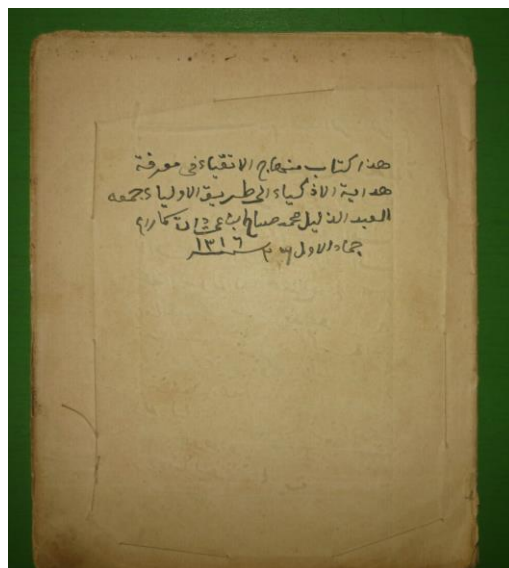 هذا كتاب منهاج الاتقياء في معرفة
هداية الاذكياء الى طريقة الاولياء جمعه
العبد الذليل محمد صالح ابن عمر
جماد الاول سنة ١٣١٦